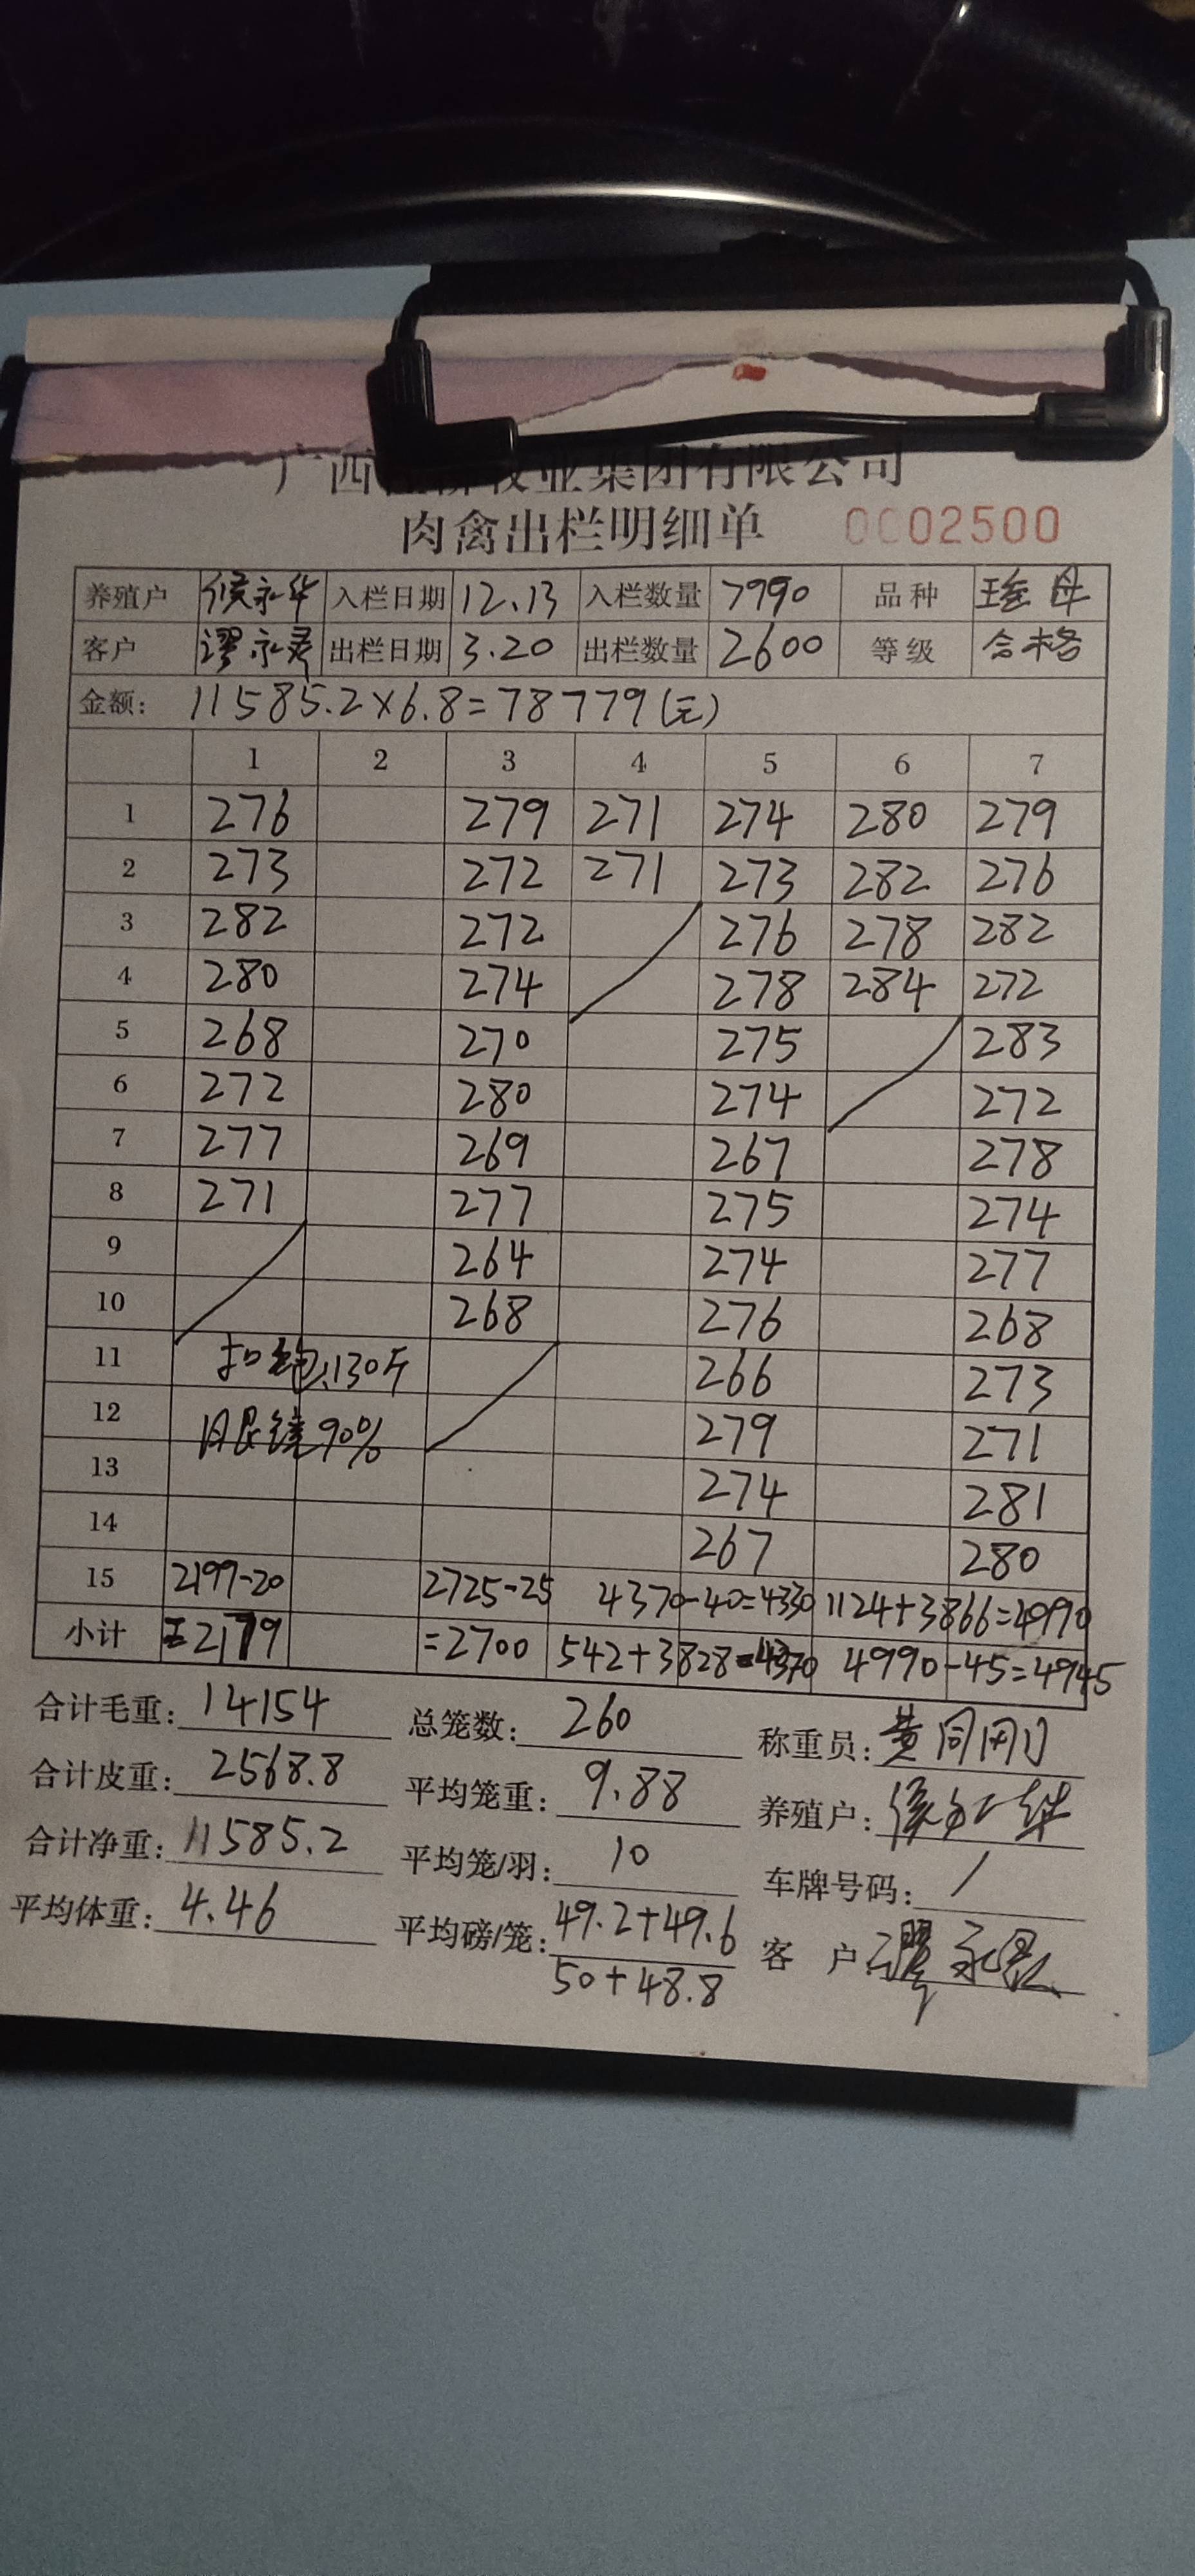 广西 牧业集团有限公司
肉禽出栏明细单 0002500
养殖户 侯永华 入栏日期 12.13 入栏数量 7990 品种 瑶母
客户 谬永 出栏日期 3.20 出栏数量 2600 等级 合格
金额: 11585.2×6.8=78779(元)
1 2 3 4 5 6 7
1 276 279 271 274 280 279
2 273 272 271 273 282 276
3 282 272 276 278 282
4 280 274 278 284 272
5 268 270 275 283
6 272 280 274 272
7 277 269 267 278
8 271 277 275 274
9 264 274 277
10 268 276 268
11 扣 130斤 266 273
12 90% 279 271
13 274 281
14 267 280
15 2199-20 2725-25 4370-40=4330 1124+3866=4990
小计 =2179 =2700 542+3828=4370 4990-45=4945
合计毛重: 14154 总笼数: 260 称重员: 黄同刚
合计皮重: 2568.8 平均笼重: 9.88 养殖户: 侯永华
合计净重: 11585.2 平均笼/羽: 10 车牌号码: /
平均体重: 4.46 平均磅/笼: 49.2+49.6 客 户: 谬永
50+48.8